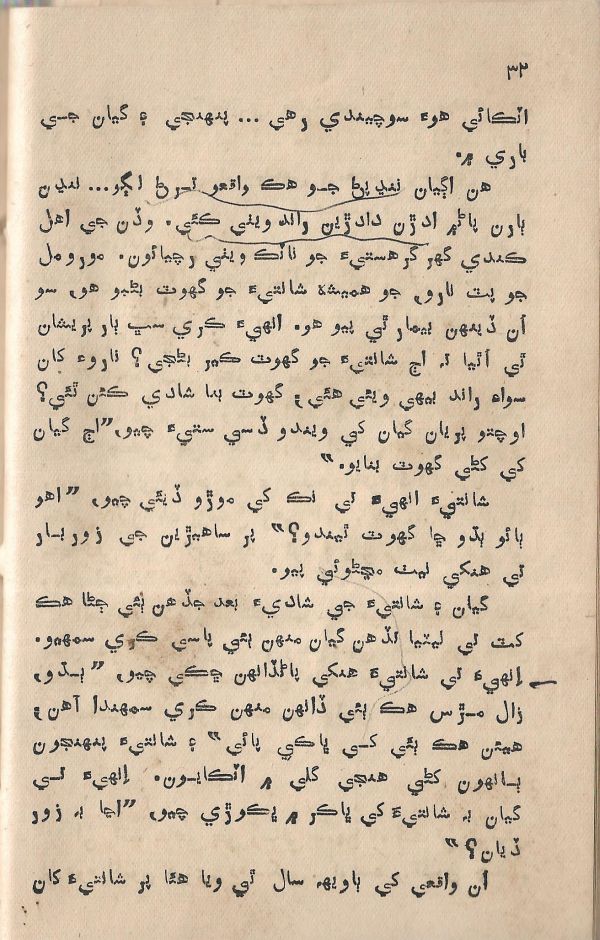 ٣٢
اٽڪائي هوءَ سوچيندي رهي ... پنهنجي ۽ گيان جي
باري ۾.
هن اڳيان ننڍپڻ جو هڪ واقعو تري اڳيو... ننڍن
ٻارن پاڻ ۾ ادڙن دادڙين راند ويٺي ڪئي. وڏن جي اهل
ڪندي گهر گرهستيءَ جو ناٽڪ ويٺي رچيائون. مورومل
جو پٽ نارو، جو هميشه شانتيءَ جو گهوٽ بڻبو هو، سو
اُن ڏينهن بيمار ٿي پيو هو. انهيءَ ڪري سڀ ٻار پريشان
ٿي اُٿيا ته اڄ شانتيءَ جو گهوٽ ڪير بڻجي؟ ناروءَ کان
سواءِ راند بيهي ويئي هئي ۽ گهوٽ بنا شادي ڪٿن ٿئي؟
اوچتو پريان گيان کي ويندو ڏسي ستيءَ چيو، ”اڄ گيان
کي کڻي گهوٽ بنايو.“
شانتيءَ انهيءَ تي نڪ کي موڙو ڏيئي چيو، ”اهو
ٻائو ٻڏو ڇا گهوٽ ٿيندو؟“ پر ساهيڙين جي زور ڀار
تي هنکي نيٺ مڃڻوئي پيو.
گيان ۽ شانتيءَ جي شاديءَ بعد جڏهن ٻئي ڄڻا هڪ
کٽ تي ليٽيا تڏهن گيان منهن ٻئي پاسي ڪري سمهيو.
اِنهيءَ تي شانتيءَ هنکي پاڻڏانهن ڇڪي چيو، ”ٻڌو،
زال مڙس هڪ ٻئي ڏانهن منهن ڪري سمهندا آهن ۽
هيئن هڪ ٻئي کي ڀاڪي پائي“ ۽ شانتيءَ پنهنجون
ٻانهون کڻي هنجي گلي ۾ اٽڪايون. اِنهيءَ تي
گيان به شانتيءَ کي ڀاڪر ۾ ڀڪوڙي چيو، ”اڇا به زور
ڏيان؟“
اُن واقعي کي ٻاويهه سال ٿي ويا هئا پر شانتيءَ کان